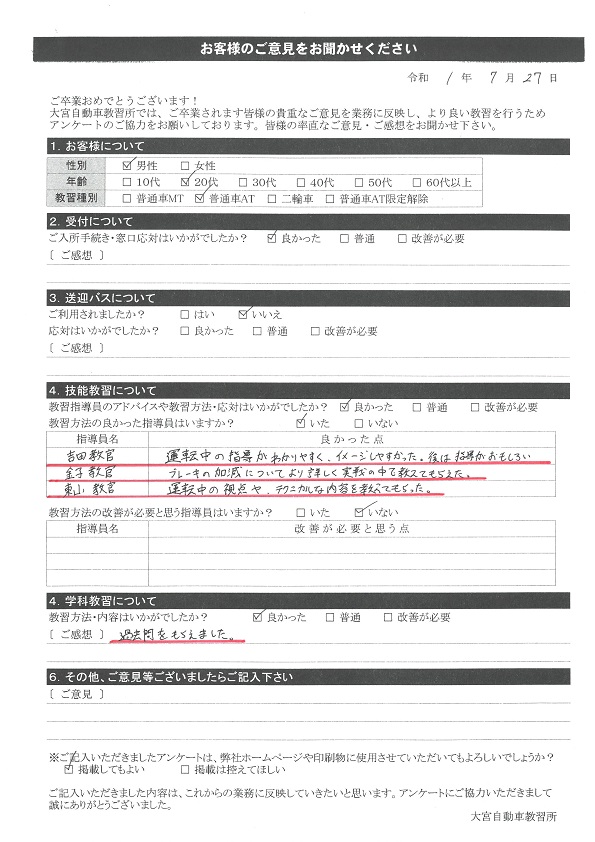 お客様のご意見をお聞かせください
令和 1 年 7 月 27 日
ご卒業おめでとうございます!
大宮自動車教習所では、ご卒業されます皆様の貴重なご意見を業務に反映し、より良い教習を行うため
アンケートのご協力をお願いしております。皆様の率直なご意見・ご感想をお聞かせ下さい。
1. お客様について
性別 ☑男性 □女性
年齢 □10代 ☑20代 □30代 □40代 □50代 □60代以上
教習種別 □普通車MT ☑普通車AT □二輪車 □普通車AT限定解除
2. 受付について
ご入所手続き・窓口応対はいかがでしたか? ☑良かった □普通 □改善が必要
〔 ご感想 〕
3. 送迎バスについて
ご利用されましたか? □はい ☑いいえ
応対はいかがでしたか? □良かった □普通 □改善が必要
〔 ご感想 〕
4. 技能教習について
教習指導員のアドバイスや教習方法・応対はいかがでしたか? ☑良かった □普通 □改善が必要
教習方法の良かった指導員はいますか? ☑いた □いない
指導員名 良かった点
吉田教官 運転中の指導がわかりやすく、イメージしやすかった。後は指導がおもしろい
金子教官 ブレーキの加減についてより詳しく実戦の中で教えてもらえた。
東山 教官 運転中の視点や、テクニカルな内容を教えてもらった。
教習方法の改善が必要と思う指導員はいますか? □いた ☑いない
指導員名 改善が必要と思う点
4. 学科教習について
教習方法・内容はいかがでしたか? ☑良かった □普通 □改善が必要
〔 ご感想 〕 過去問をもらえました。
6. その他、ご意見等ございましたらご記入下さい
〔 ご意見 〕
※ご記入いただきましたアンケートは、弊社ホームページや印刷物に使用させていただいてもよろしいでしょうか?
☑掲載してもよい □掲載は控えてほしい
ご記入いただきました内容は、これからの業務に反映していきたいと思います。アンケートにご協力いただきまして
誠にありがとうございました。
大宮自動車教習所